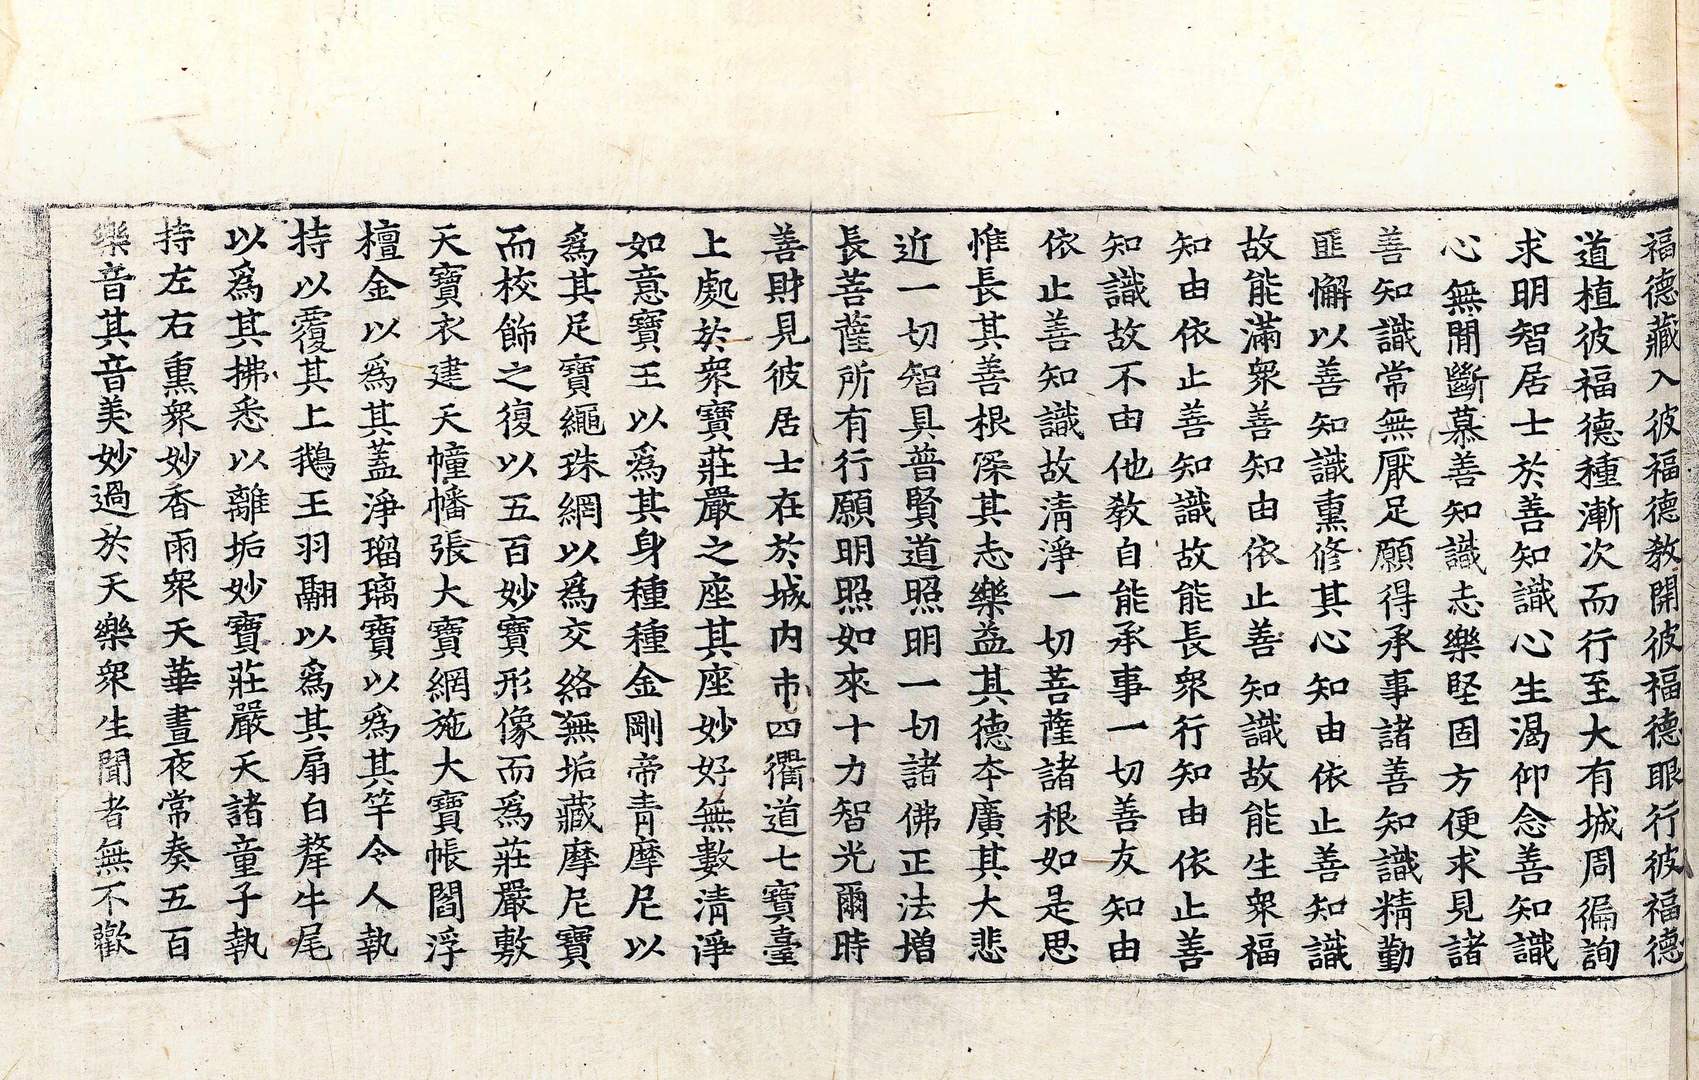 福德藏入彼福德敎開彼福德眼行彼福德
道植彼福德種漸次而行至大有城周徧詢
求明智居士於善知識心生渴仰念善知識
心無閒斷慕善知識志樂堅固方便求見諸
善知識常無厭足願得承事諸善知識精勤
匪懈以善知識熏修其心知由依止善知識
故能滿衆善知由依止善知識故能生衆福
知由依止善知識故能長衆行知由依止善
知識故不由他敎自能承事一切善友知由
依止善知識故淸淨一切菩薩諸根如是思
惟長其善根深其志樂益其德夲廣其大悲
近一切智具普賢道照明一切諸佛正法增
長菩薩所有行願明照如來十力智光爾時
善財見彼居士在於城内市四衢道七寶臺
上處於衆寶莊嚴之座其座妙好無數淸淨
如意寶王以爲其身種種金剛帝靑摩尼以
爲其足寶繩珠網以爲交絡無垢藏摩尼寶
而校飾之復以五百妙寶形像而爲莊嚴敷
天寶衣建天幢幡張大寶網施大寶帳閻浮
檀金以爲其蓋淨瑠璃寶以爲其竿令人執
持以覆其上鵝王羽翮以爲其扇白犛牛尾
以爲其拂悉以離垢妙寶莊嚴天諸童子執
持左右熏衆妙香雨衆天華晝夜常奏五百
樂音其音美妙過於天樂衆生聞者無不歡